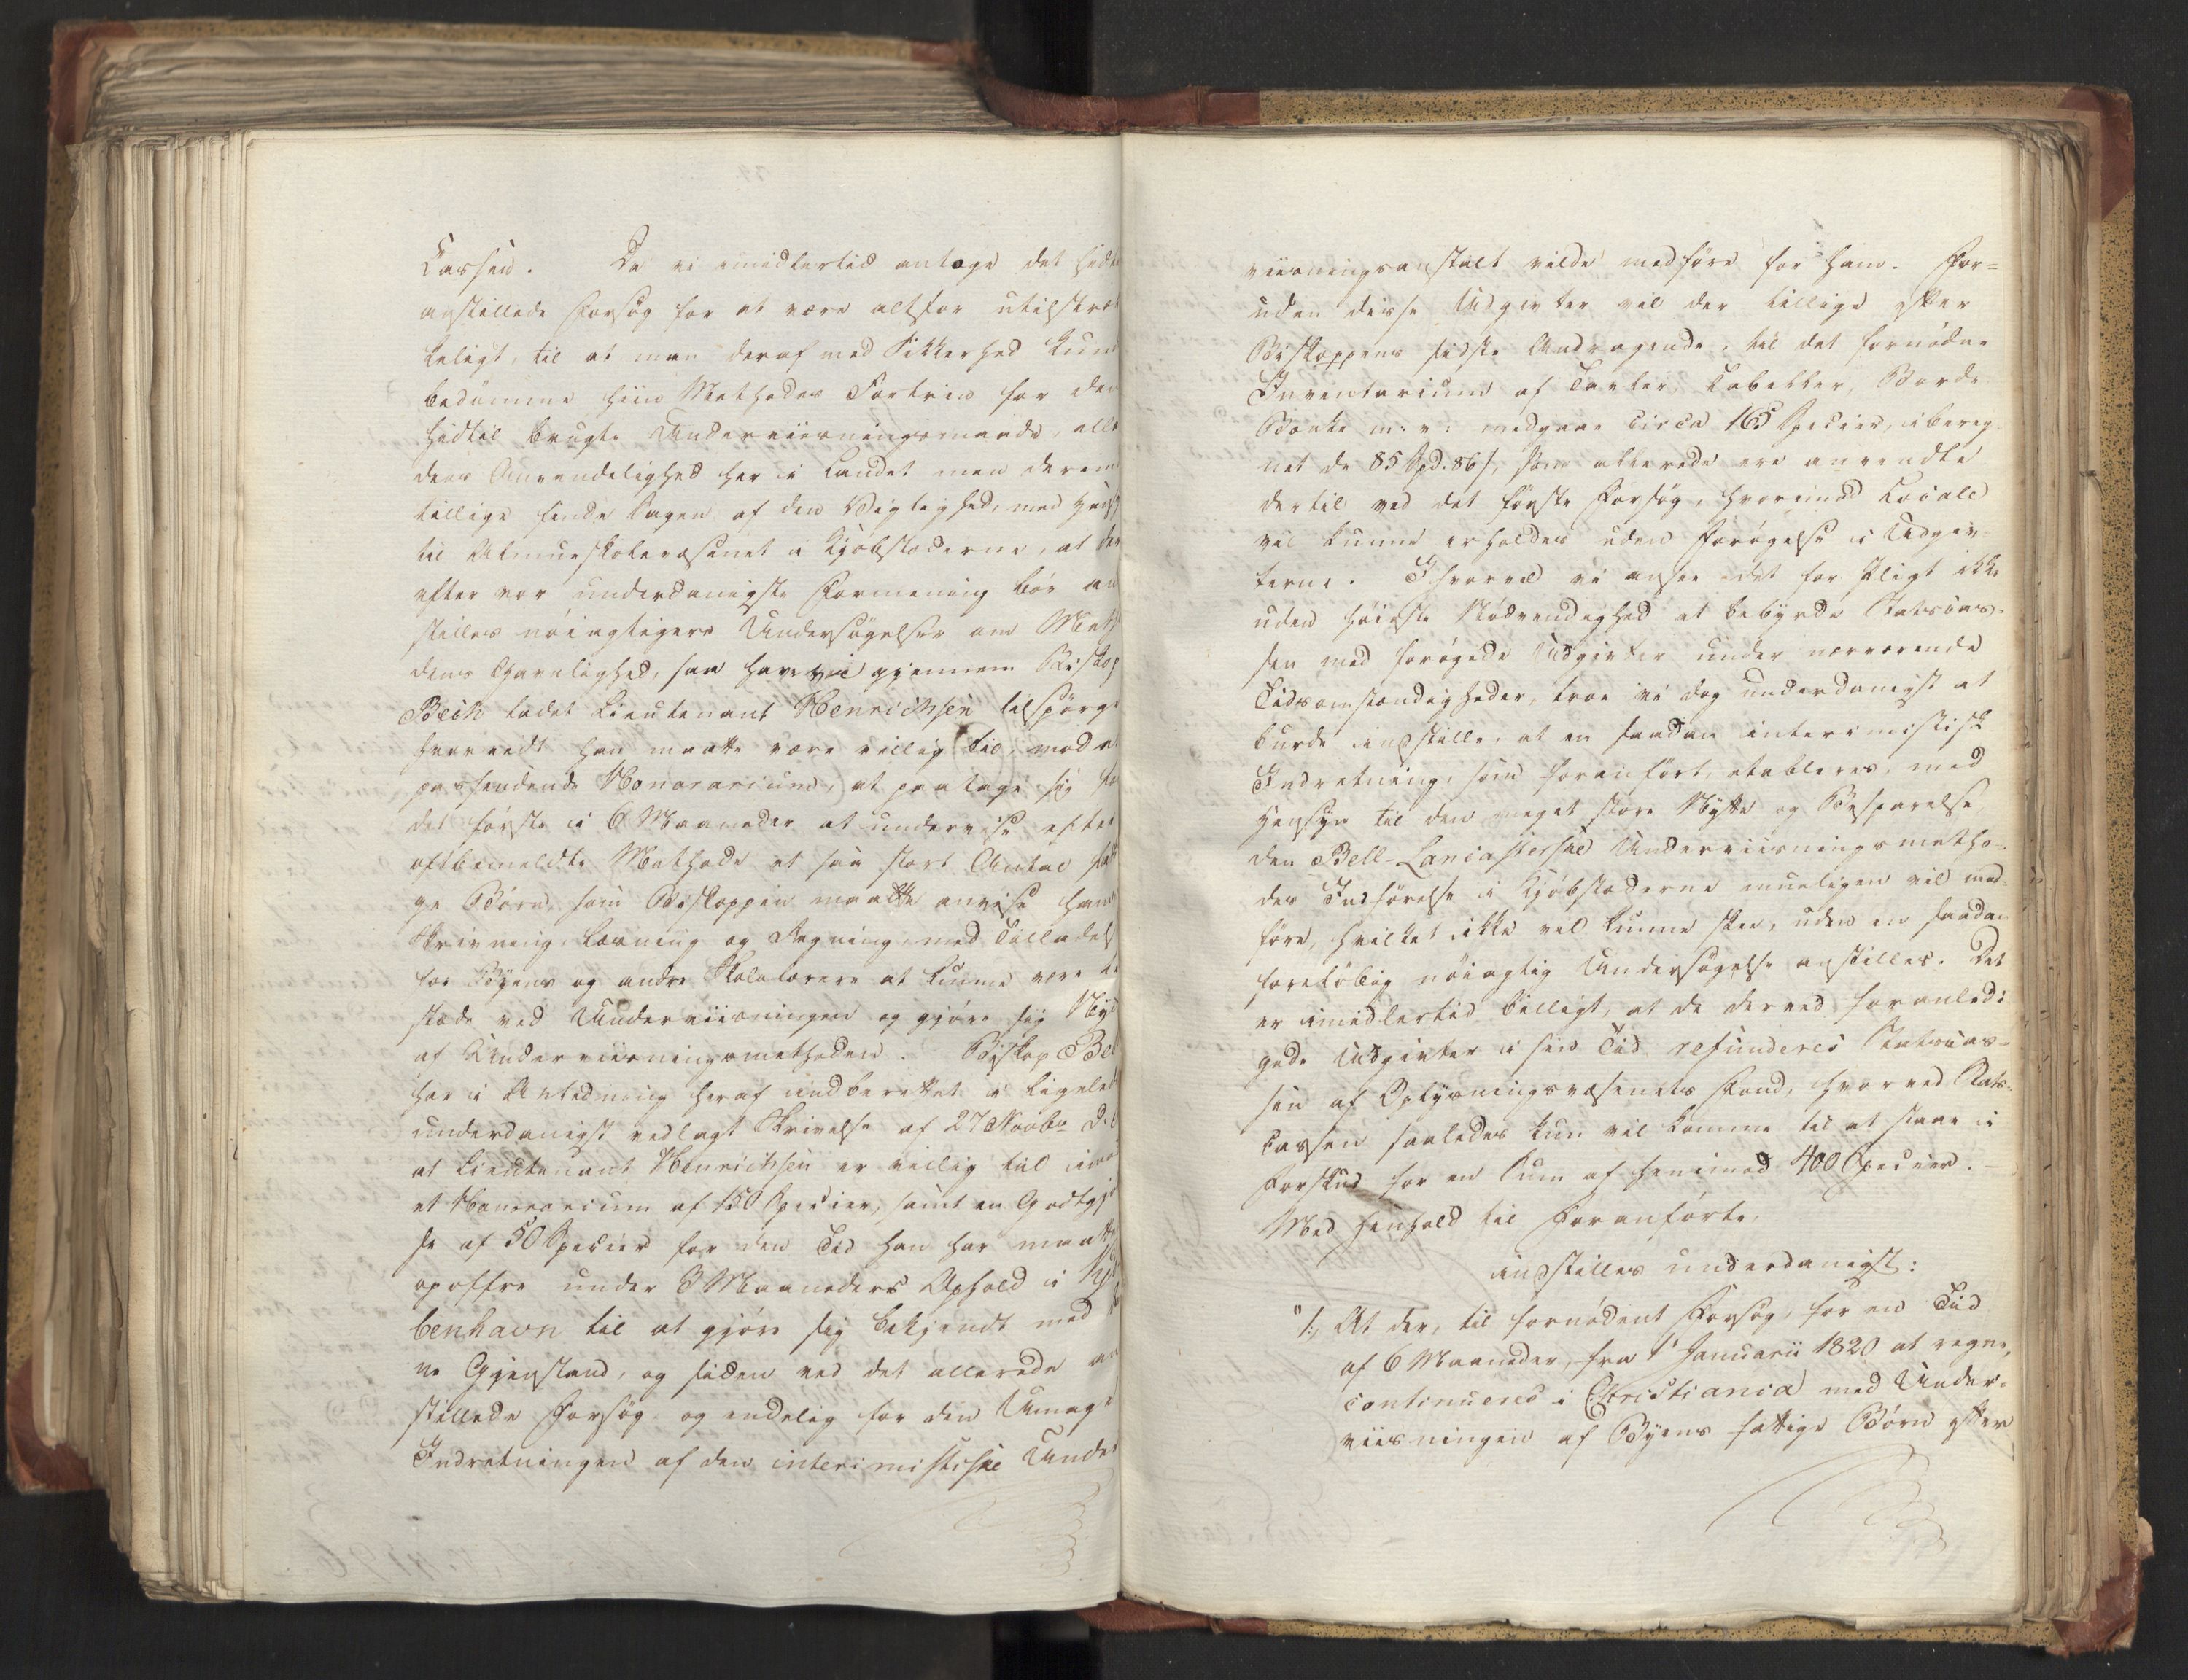 Cassen. Da vi imidlertid antage det hidt
anstillede Forsøg for at være altfor utilstræk
keligt, til at man deraf med Sikkerhed kun
bedømme hiin Methodes Fortrin for den
hidtil brugte Underviisningsmaade, alle
dens Anvendelighed her i Landet men derom
tillige finde Sagen af den Vigtighed, med Hens
til Almueskolevæsenet i Kjøbstæderne, at der
efter vor underdanigste Formening bør an
stilles nøiagtigere Undersøgelser om Meth
dens Gavnlighed, saa have vi gjennem Biskop
Bech ladet Lieutenant Henrichsen tilspørge
hvorvidt han maatte være villig til, mod et
passendende Honorarium, at paatage sig fo
det første i 6 Maaneder at undervise efter
oftbemeldte Methode et saa stort Antal fatt
ge Børn, som Biskoppen maatte anvise ham
Skrivning, Læsning og Regning, med Tilladels
for Byens og andre Skolelærere at kunne være ti
stæde ved Underviisningen og gjøre sig Nyt
af Underviisningsmethoden. Biskop Bec
har i Anledning heraf indberettet i ligeled
underdanigst vedlagt Skrivelse af 27 Novbr d. A
at Lieutenant Henrichsen er villig til imo
et Honorarium af 150 Specier, samt en Godtgjø
se af 50 Specier for den Tid han har maatte
opoffre under 3 Maaneders Ophold i Kjø
benhavn til at gjøre sig bekjendt med
ne Gjenstand, og siden ved det allerede an
stillede Forsøg og endelig for den Umage
Indretningen af den interimistiske Under
viisningsanstalt vilde medføre for ham. For-
uden disse Udgivter vil der tillige efter
Biskoppens sidste Andragende, til det fornødne
Inventarium af Tavler, Tabeller, Borde
Bænke m: v: medgaae circa 165 Specier, ibereg
net de 85 Spd. 86 s, som allerede ere anvendte
dertil ved det første Forsøg, hvorimod Locale
vil kunne erholdes uden Forøgelse i Udgiv
terne. Ihvorvel vi ansee det for Pligt ikke
uden høieste Nødvendighed at bebyrde Statscas-
sen med forøgede Udgivter under nærværende
Tidsomstændigheder, troe vi dog underdanigst at
burde indstille, at en saadan interimistisk
Indretning, som foranført, etableres, med
Hensyn til den meget store Nytte og Besparelse
den Bell-Lancasterske Underviisningsmetho-
des Indførelse i Kjøbstæderne mueligen vil med-
føre, hvilket ikke vel kunne skee, uden en saadan
foreløbig nøiagtig Undersøgelse anstilles. Det
er imidlertid billigt, at de derved foranledi
gede Udgivter i sin Tid refunderes Statscas-
sen af Oplysningsvæsenets Fond, hvorved Stats-
cassen saaledes kun vil komme til at staae i
Forskud for en Sum af henimod 400 Specier.-
Med Henhold til Foranførte,
indstilles underdanigst:
"1, At der, til fornødent Forsøg, for en Tid
af 6 Maaneder, fra 1' Januarii 1820 at regne,
continueres i Christiania med Under-
viisningen af Byens fattige Børn efter